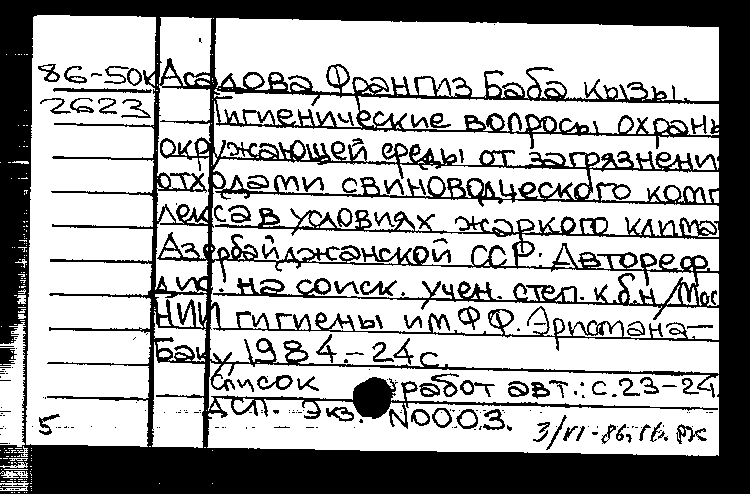 86-50к Асадова, Франгиз Баба кызы.
2623 Гигиенические вопросы охраны
окружающей среды от загрязнени
отходами свиноводческого комп
лекса в условиях жаркого климат
Азербайджанской ССР: Автореф.
дис. на соиск. учен. степ. к.б.н/Мос
НИИ гигиены им. Ф.Ф. Эрисмана.-
Баку, 1984.-24с.
Список работ авт.: с.23-24.
ДСП. Экз. N0003.
5 3/VI-86г.